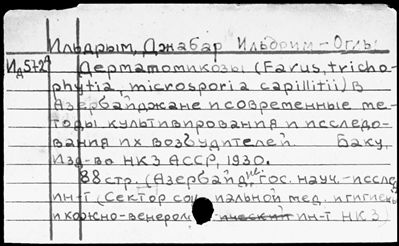 Ильдрым, Джабар Ильдрим-Оглы
Ид572ч Дерматомикозы (Farus, tricho-
phytia, microsporia capillitii) в
Азербайджане и современные ме-
тоды культивирования и исследо-
вания их возбудителей. Баку,
Изд-во НКЗ АССР, 1930.
88 стр. (Азербайд. гос. науч.-исслед
ин-т (Сектор соц иальной мед. и гигиены
и кожно-венероло ический ин-т НКЗ)